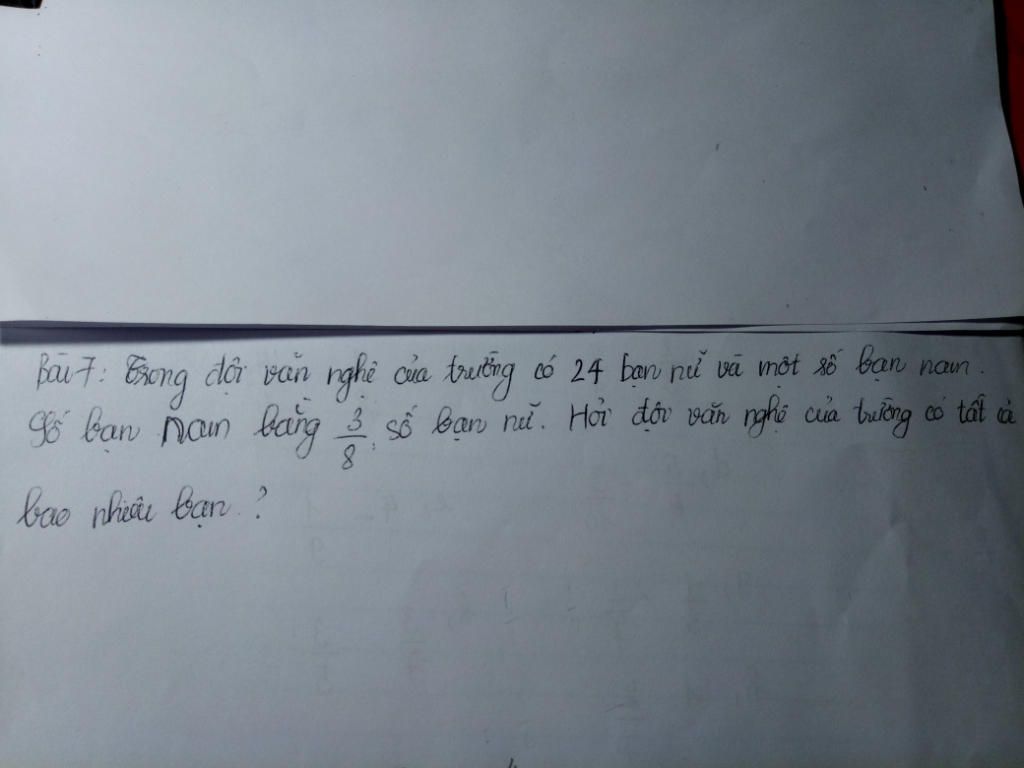 Bài 7: Trong đội văn nghệ của trường có 24 bạn nữ và một số bạn nam.
Số bạn nam bằng 3/8 số bạn nữ. Hỏi đội văn nghệ của trường có tất cả
bao nhiêu bạn ?